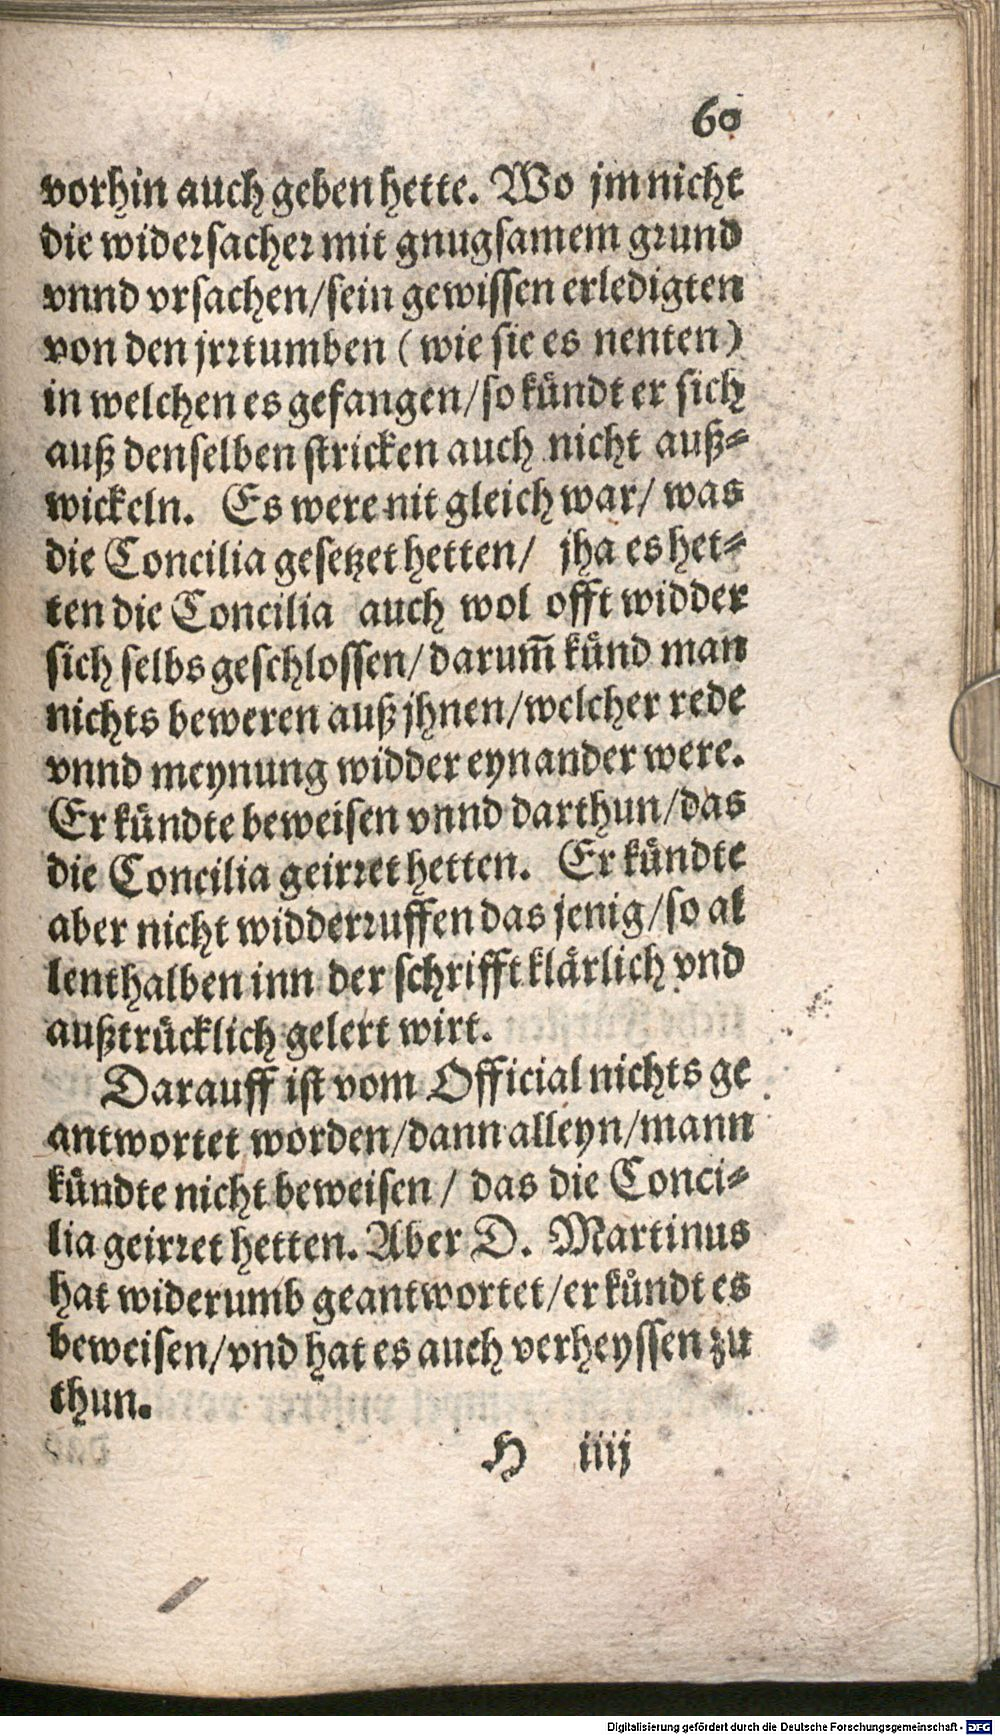 60
vorhin auch geben hette. Wo jm nicht
die widersacher mit gnugsamem grund
vnnd vrsachen/sein gewissen erledigten
von den jrrtumben (wie sie es nenten)
in welchen es gefangen/so kuͤndt er sich
auß denselben stricken auch nicht auß⸗
wickeln. Es were nit gleich war/ was
die Concilia gesetzet hetten/ jha es het⸗
ten die Concilia auch wol offt widder
sich selbs geschlossen/darum̃ kuͤnd man
nichts beweren auß jhnen/welcher rede
vnnd meynung widder eynander were.
Er kuͤndte beweisen vnnd darthun/das
die Concilia geirret hetten. Er kuͤndte
aber nicht widderruffen das jenig/so al
lenthalben inn der schrifft klaͤrlich vnd
außtruͤcklich gelert wirt.
Darauff ist vom Official nichts ge
antwortet worden/dann alleyn/mann
kuͤndte nicht beweisen/ das die Conci⸗
lia geirret hetten. Aber D. Martinus
hat widerumb geantwortet/er kuͤndt es
beweisen/vnd hat es auch verheyssen zu
thun.
H iiij
Digitalisierung gefördert durch die Deutsche Forschungsgemeinschaft - DFG